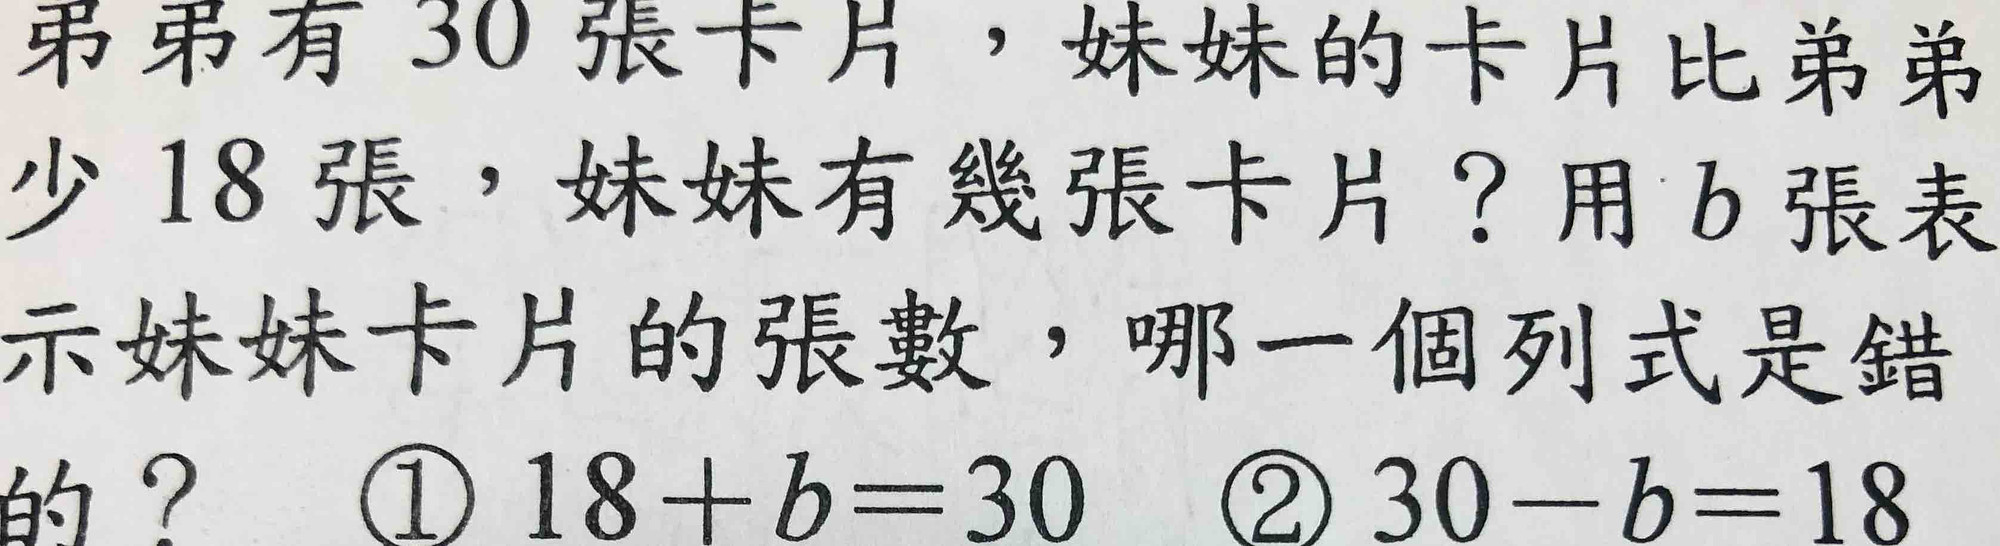 弟弟有 30 張卡片，妹妹的卡片比弟弟
少 18 張，妹妹有幾張卡片？用 b 張表
示妹妹卡片的張數，哪一個列式是錯
的？ ① 18＋b＝30 ② 30－b＝18